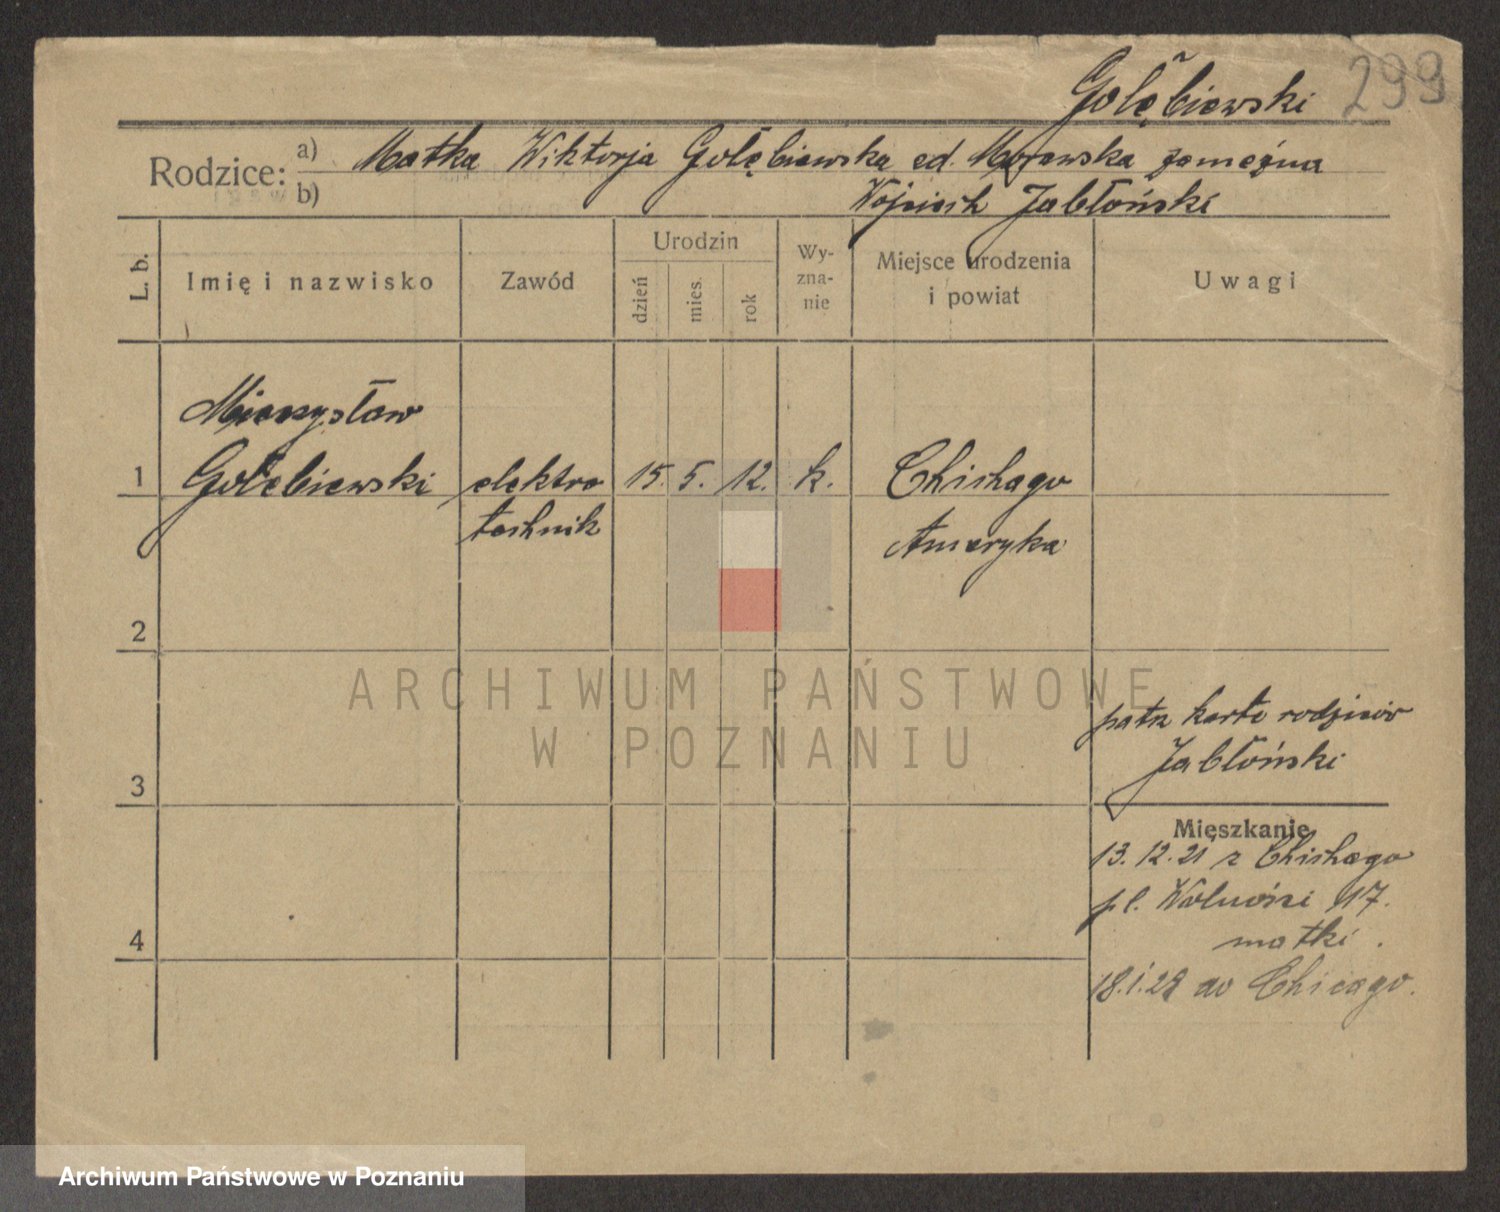 Gołębiewski 299
Rodzice: a) Matka Wiktorja Gołębiewska ed. Morawska zamężna
b) Wojciech Jabłoński
L. b.
Imię i nazwisko
Zawód
Urodzin
dzień
mies.
rok
Wy-
zna-
nie
Miejsce urodzenia
i powiat
Uwagi
Mieczysław
1 Gołębiewski elektro 15. 5. 12. k. Chichago
technik Ameryka
2
patrz kartę rodziców
Jabłoński
3
Mięszkanie
13. 12. 21 z Chichago
pl. Wolności 17.
4 matki.
18.1.28 do Chicago.
ARCHIWUM PAŃSTWOWE
W POZNANIU
Archiwum Państwowe w Poznaniu